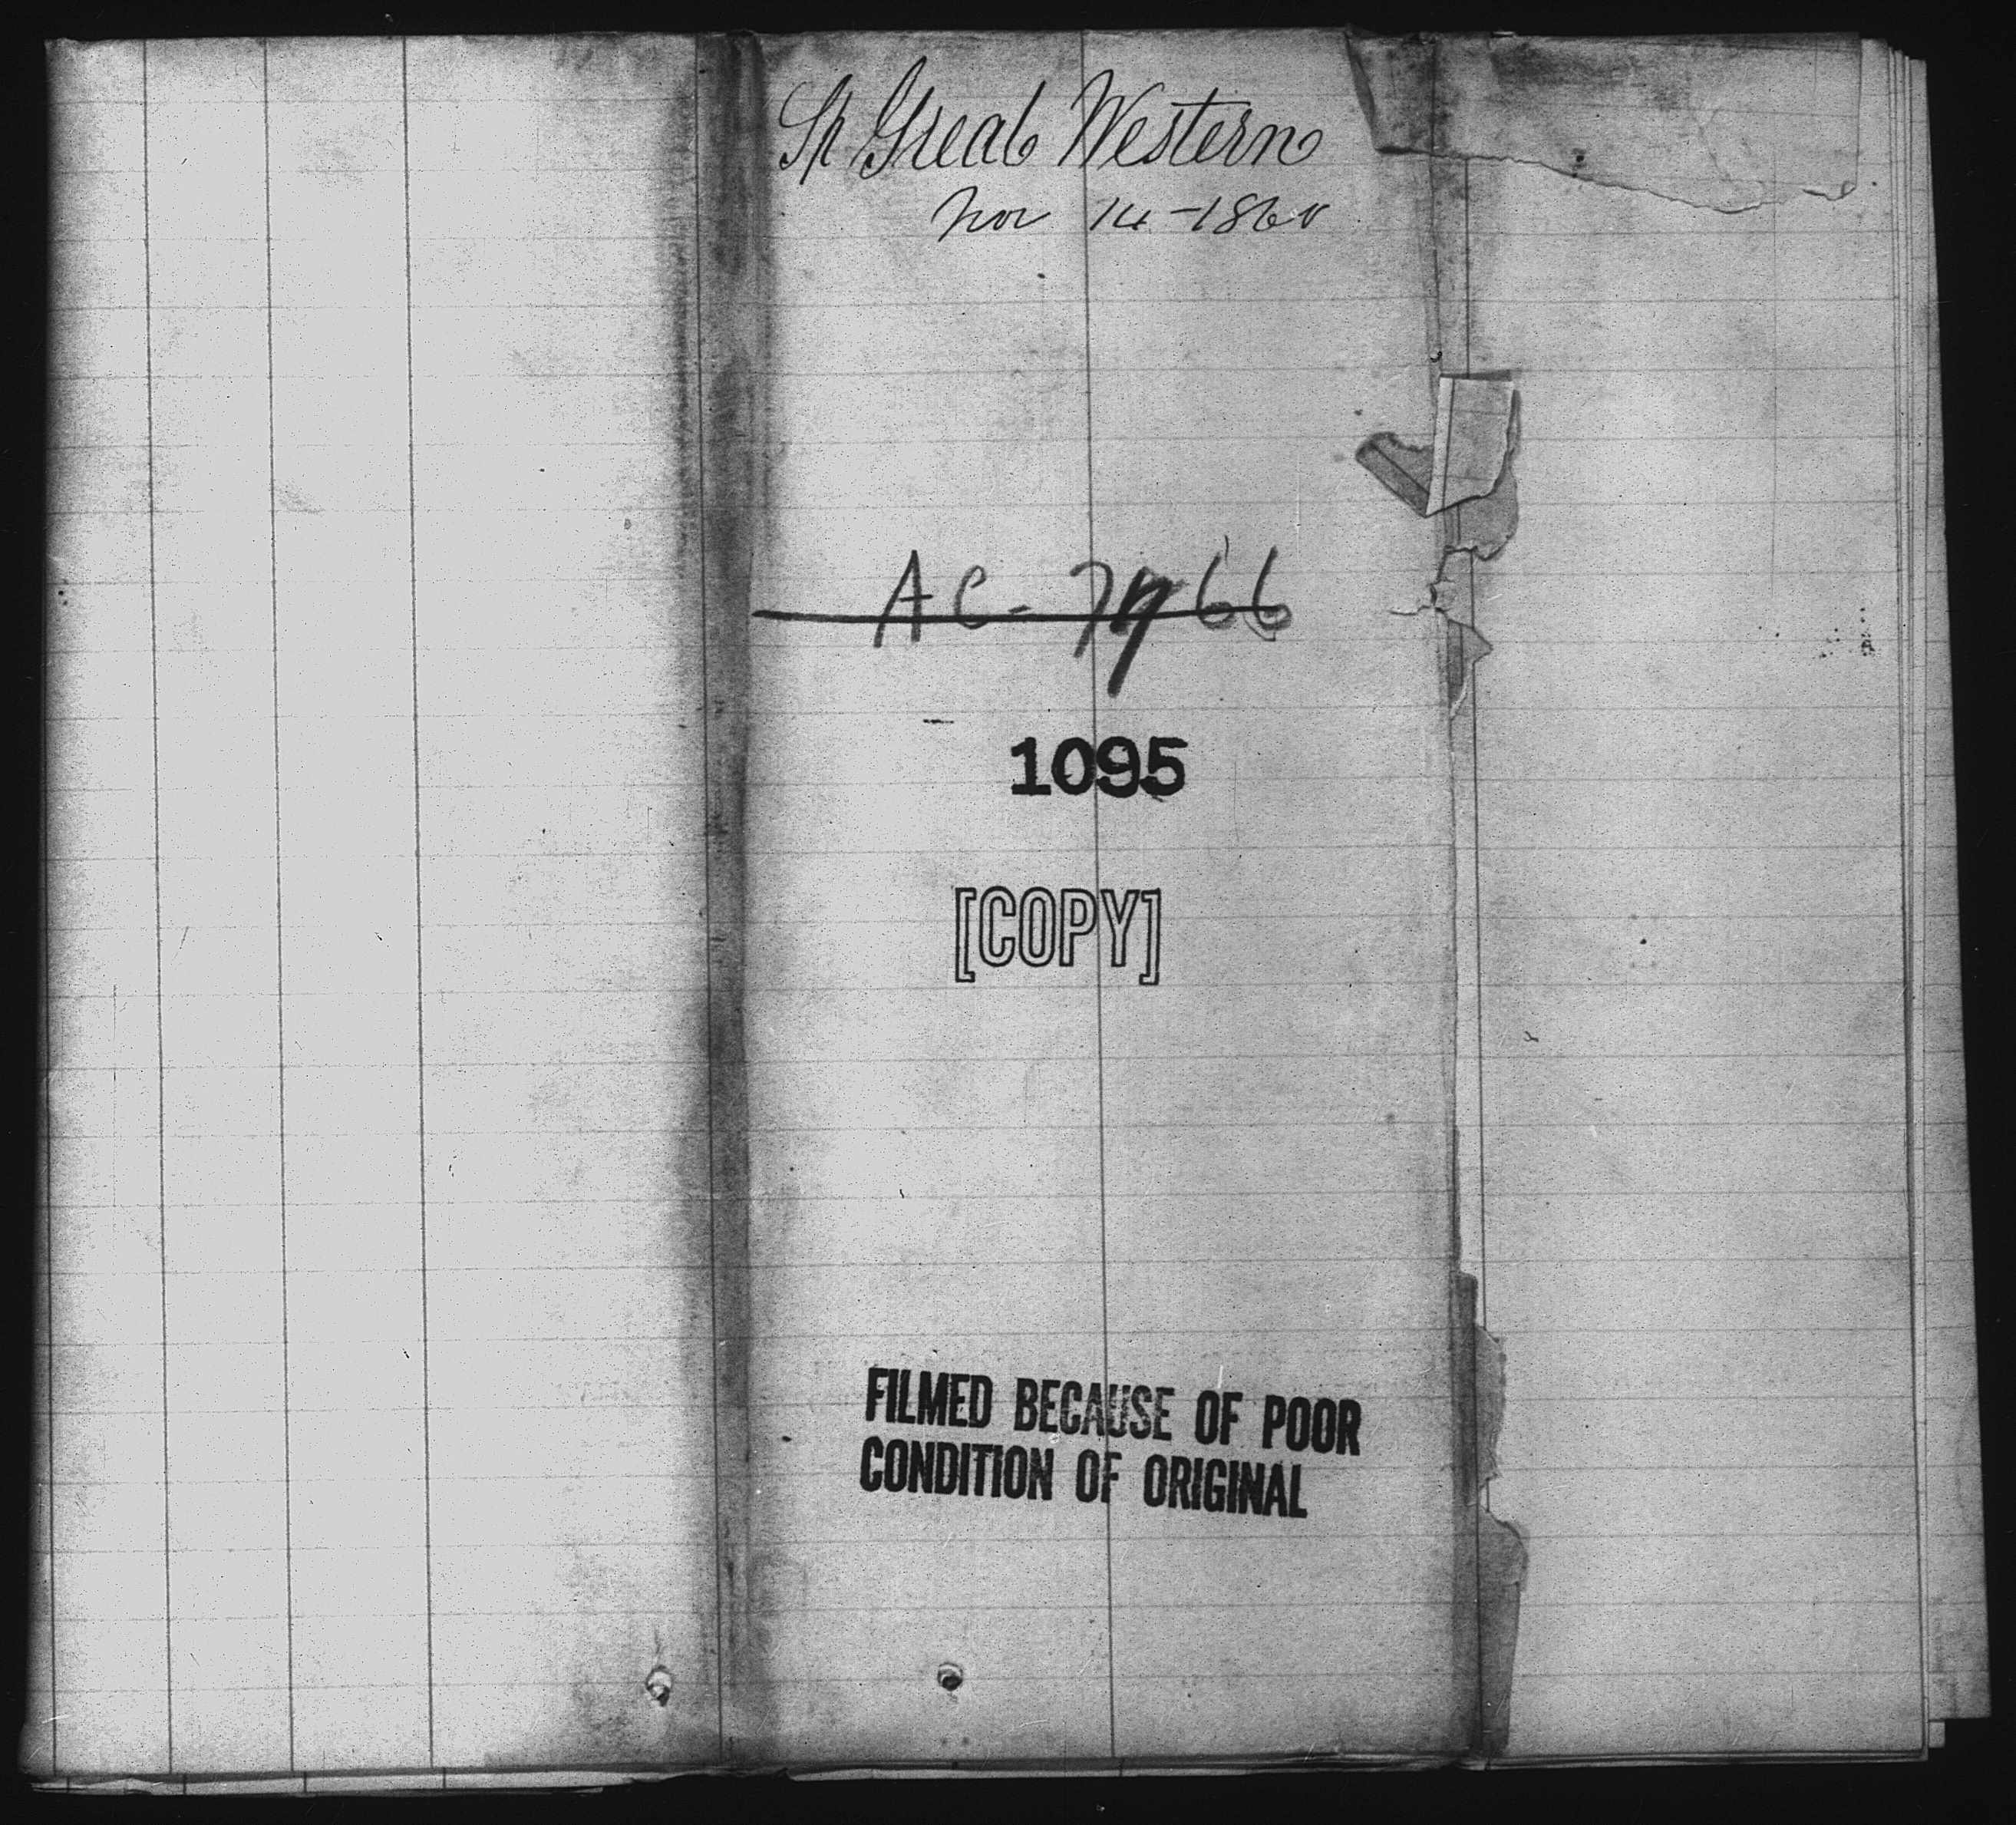 Sp Great Western
Nov 14-1860
AC-7766
1095
[COPY]
FILMED BECAUSE OF POOR
CONDITION OF ORIGINAL